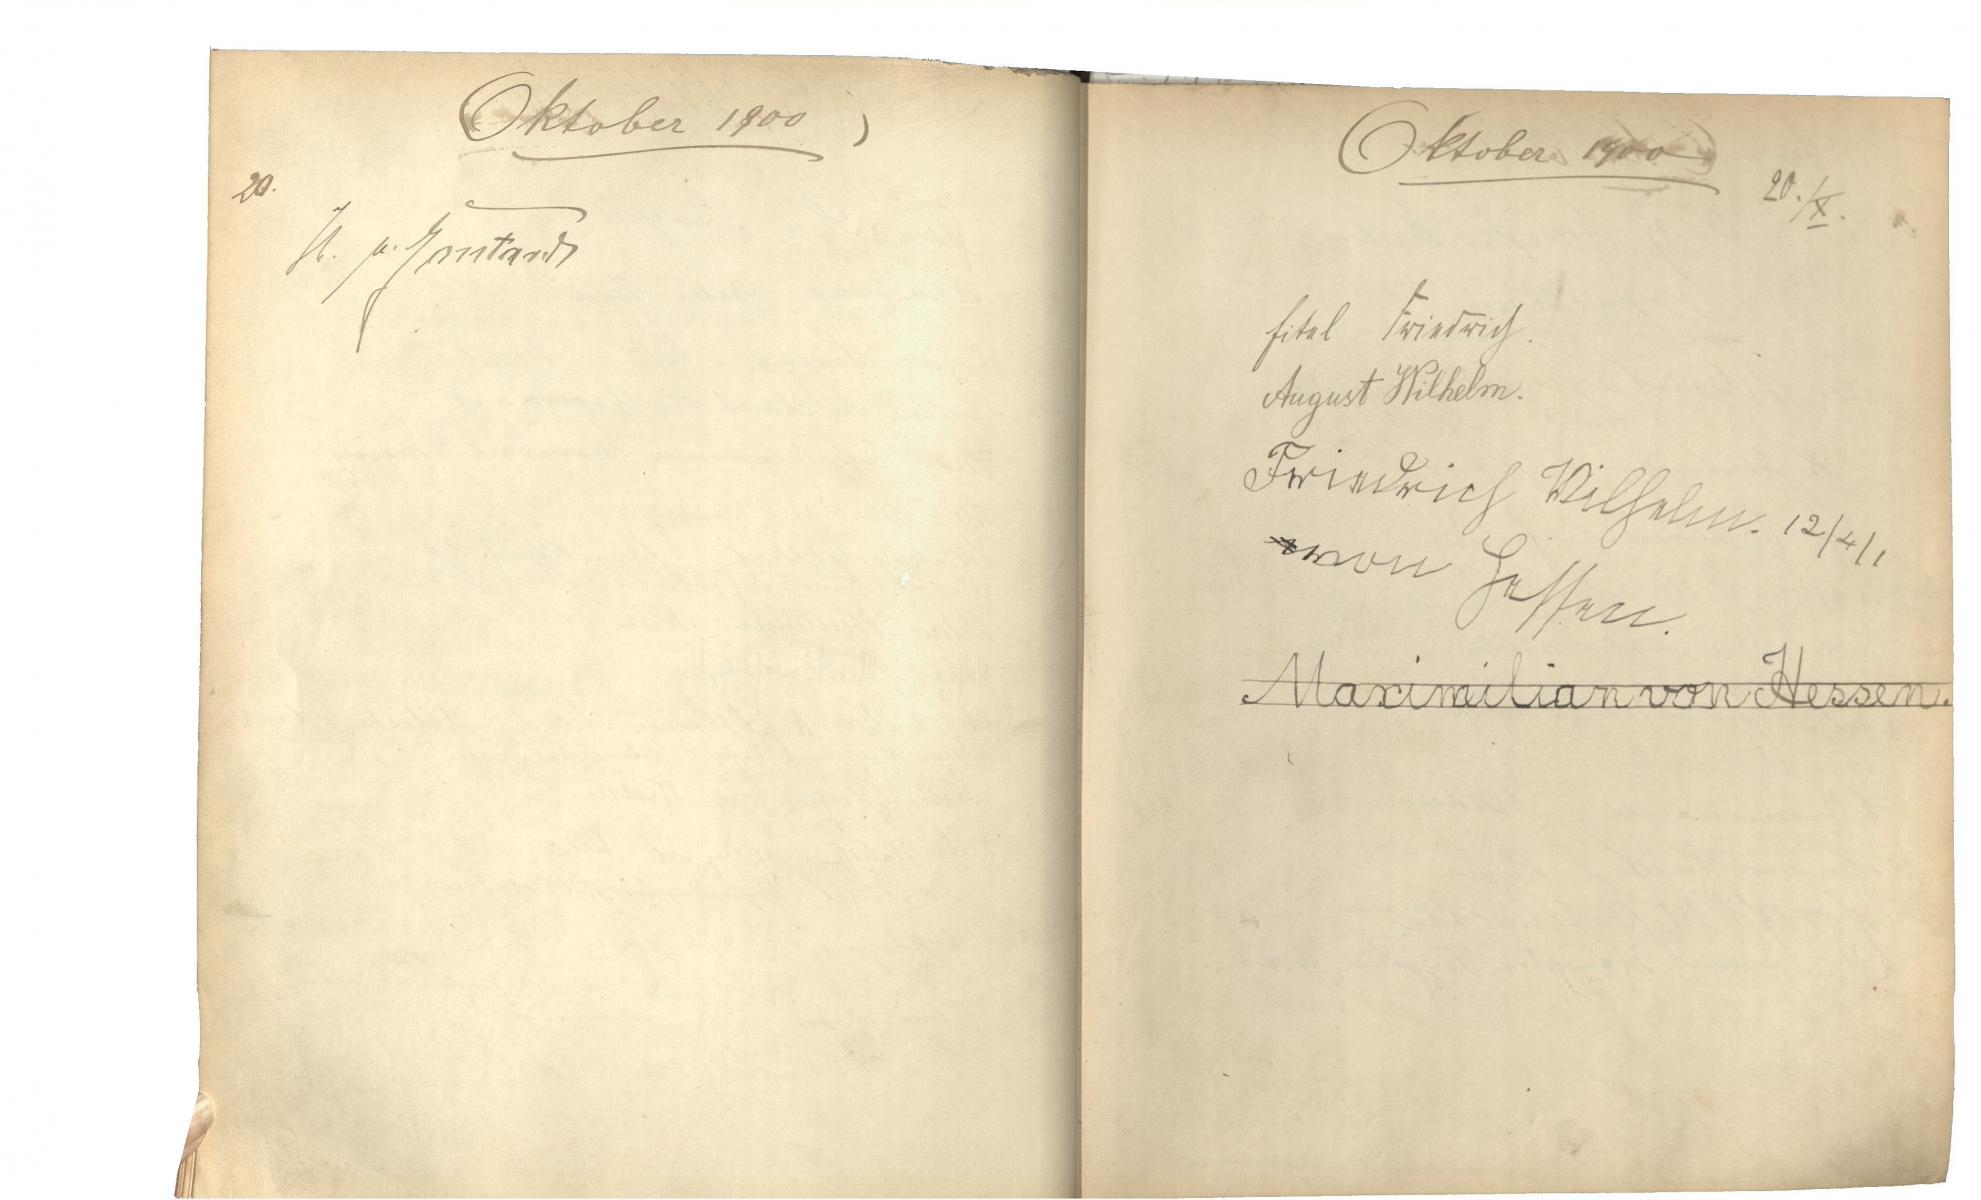 Oktober 1900
20.
v. Gontard
Oktober 1900
20./X.
Eitel Friedrich.
August Wilhelm.
Friedrich Wilhelm. 12/4/1
von Hessen.
Maximilian von Hessen.